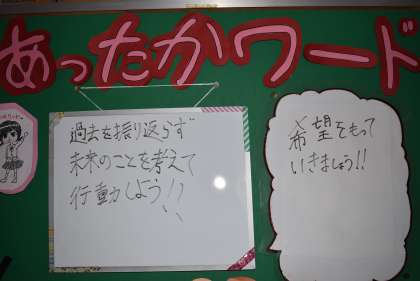 あったかワード
過去を振り返らず
未来のことを考えて
行動しよう!!
希望をもって
いきましょう!!